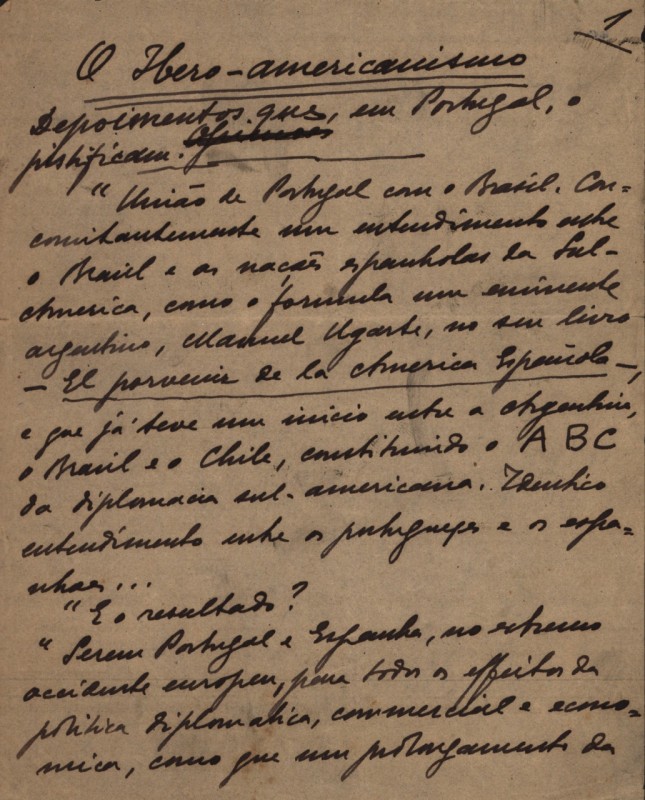 1
O Ibero-americanismo
Depoimentos que, em Portugal, o
justificam.
"União de Portugal com o Brasil. Con=
comitantemente um entendimento entre
o Brasil e as nações espanholas da Sul-
America, como o formula um eminente
argentino, Manuel Ugarte, no seu livro
— El porvenir de la America Española —,
e que já teve um inicio entre a Argentina,
o Brasil e o Chile, constituindo o A B C
da diplomacia sul-americana. Identico
entendimento entre os portugueses e os espa=
nhoes...
"E o resultado?
"Serem Portugal e Espanha, no extremo
occidente europeu, para todos os effeitos da
politica diplomatica, commercial e econo=
mica, como que um prolongamento da